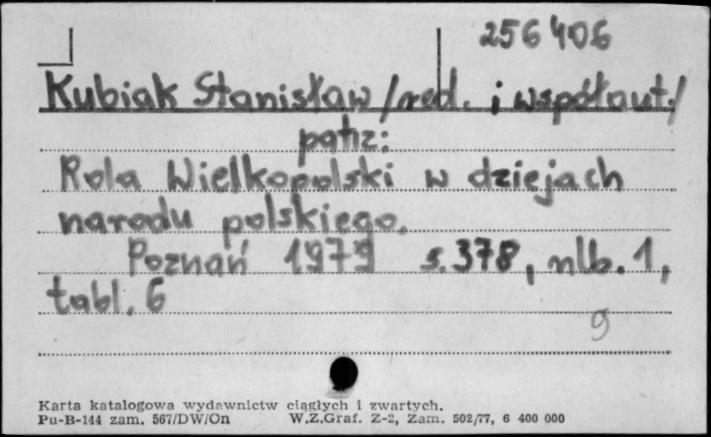 256406
Kubiak Stanisław /red. i współaut./
patrz:
Rola Wielkopolski w dziejach
narodu polskiego.
Poznań 1979 s. 378, nlb. 1,
tabl. 6
9
Karta katalogowa wydawnictw ciągłych i zwartych.
Pu-B-144 zam. 567/DW/On W.Z.Graf. Z-2, Zam. 502/77, 6 400 000